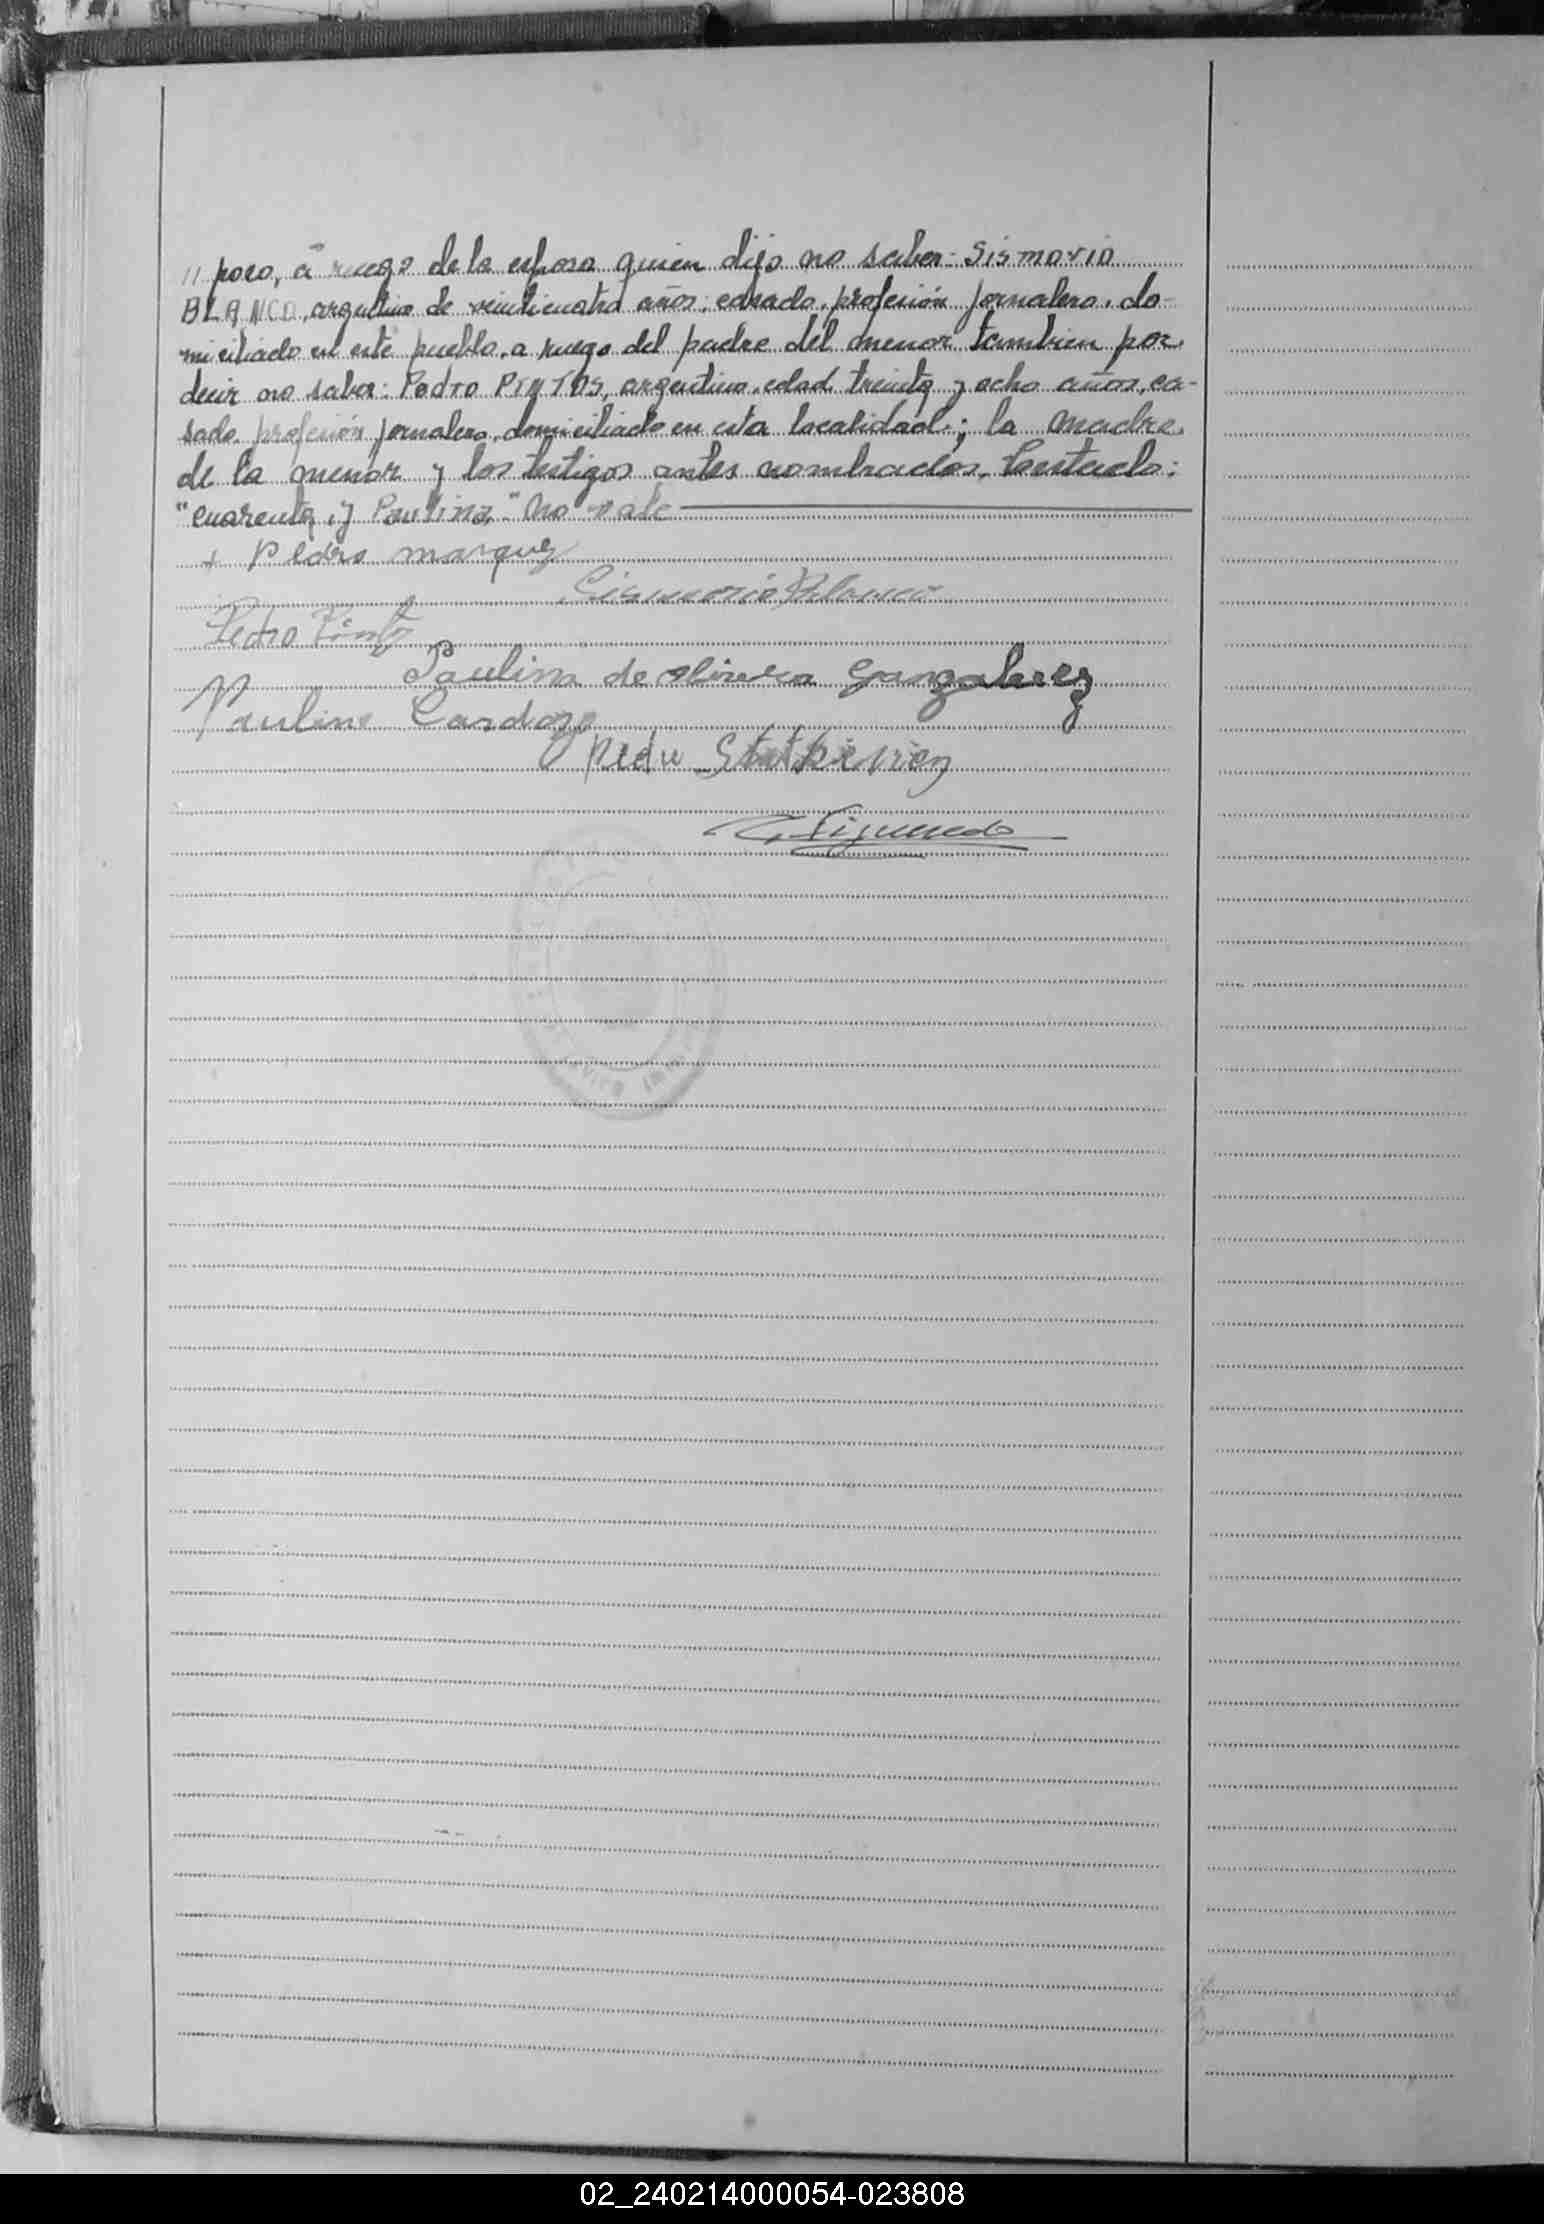 // poco, á ruego de la esposa quien dijo no saber: Sismorio
BLANCO, argentino de veinticuatro años, casado, profesión jornalero, do-
miciliado en este pueblo, a ruego del padre del menor tambien por
decir no saber: Pedro PINTOS, argentino, edad treinta y ocho años, ca-
sado, profesión jornalero, domiciliado en esta localidad; la madre
de la menor y los testigos antes nombrados. Testado:
"cuarenta, y Paulina," no vale
+ Pedro marquez
Sismorio Blanco
Pedro Pintos
Paulina de olivera Gonzalez
Paulino Cardozo
Pedro
Figueredo
02_240214000054-023808